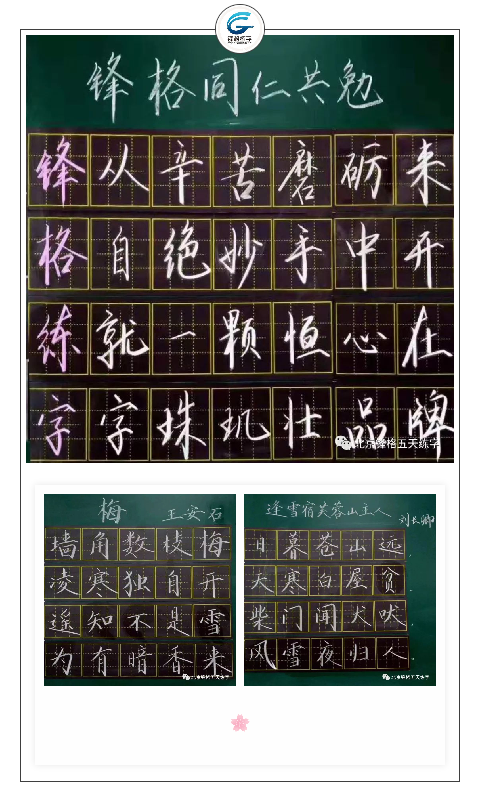 锋格同仁共勉
锋从辛苦磨砺来
格自绝妙手中开
练就一颗恒心在
字字珠玑壮品牌
北京锋格五天练字
梅 王安石
墙角数枝梅
凌寒独自开
遥知不是雪
为有暗香来
北京锋格五天练字
逢雪宿芙蓉山主人 刘长卿
日暮苍山远
天寒白屋贫
柴门闻犬吠
风雪夜归人
北京锋格五天练字